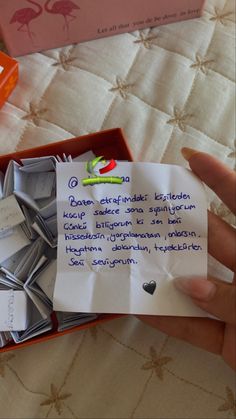 Let all that you do be done in love
@
Bazen etrafımdaki kişilerden
kaçıp sadece sana sığınıyorum
Çünkü biliyorum ki sen beni
hissedersin, yargılamazsın, anlarsın.
Hayatıma dokundun, teşekkürler.
Seni seviyorum.